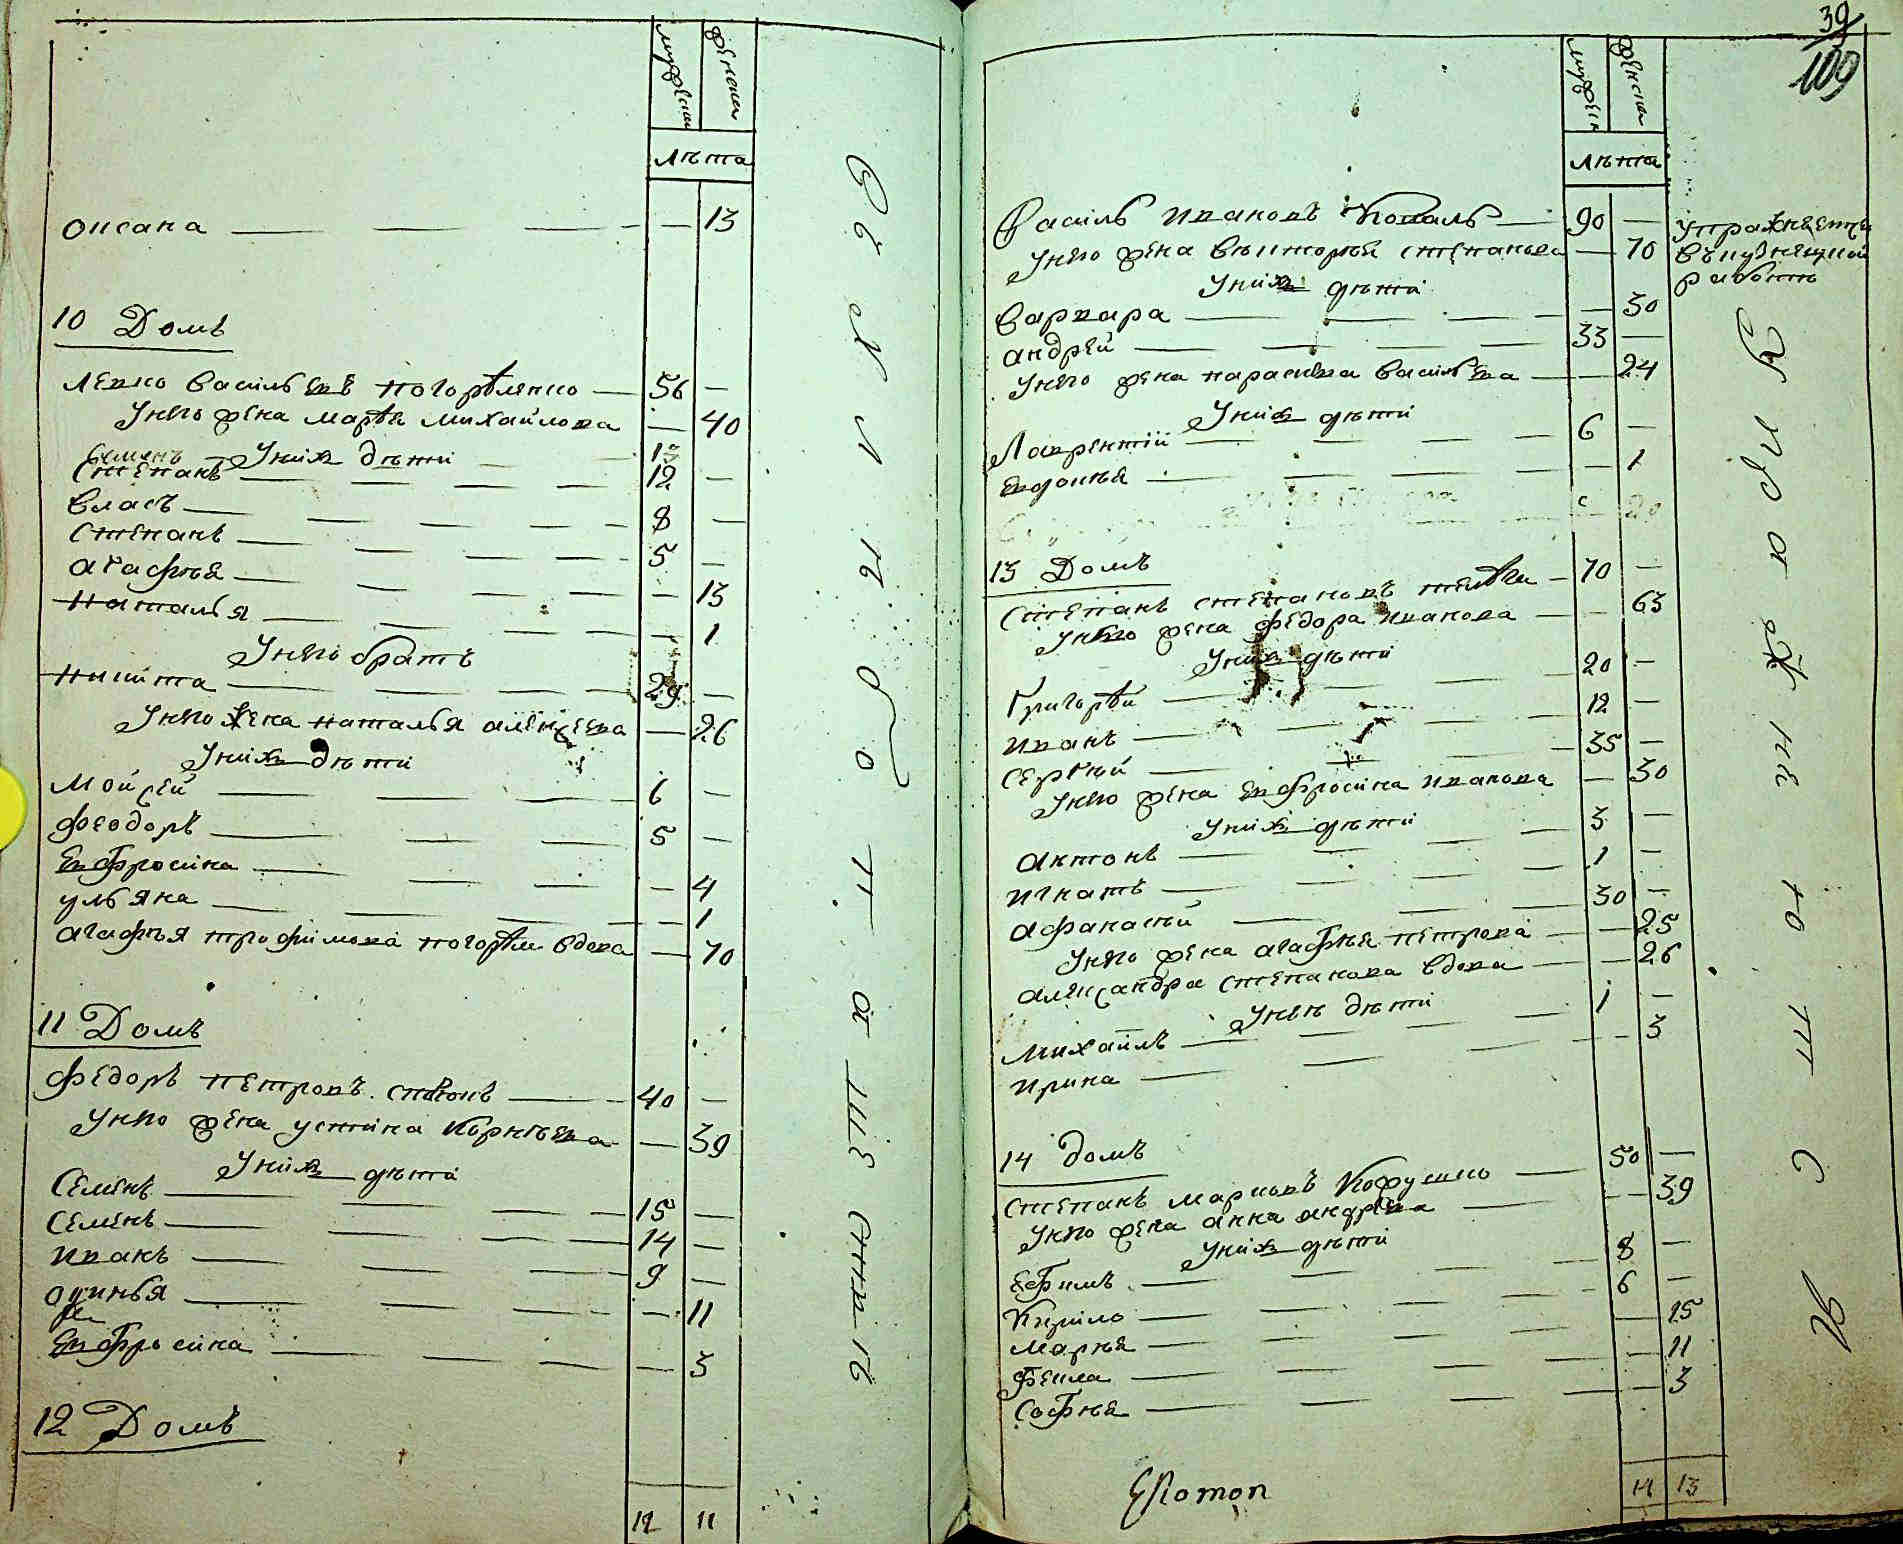 мужеска
женска
лѣта
Оксана — 13
10 Домъ
Левко Васильевъ Погорѣленко — 56 —
У него жена Марѳа Михайлова — 40
У них дѣти
Семенъ 13
Степанъ — 12 —
Власъ — 8 —
Степанъ — 5 —
Агафия — 13
Наталья — 1
У него братъ
Никита — 29 —
У него жена Наталья Алексѣева — 26
У них дѣти
Мойсей — 6 —
Феодоръ — 5 —
Евфросина — 4
Ульяна — 1
Агафья Трофимова вдова — 70
11 Домъ
Федоръ Петровъ — 40 —
У него жена Устина Корнѣева — 39
У них дѣти
Семенъ — 15 —
Семенъ — 14 —
Иванъ — 9 —
— 11
Евфросина — 3
12 Домъ
12 11
39
109
мужеска
женска
лѣта
Василь Ивановъ Коваль — 90 —
У него жена Степанова — 70
упражняется
въ кузнецкой
работѣ
У них дѣти
Варвара — 30
Андрей — 33 —
У него жена Парасква Васильева — 24
У них дѣти
Лаврентій — 6 —
Евдокия — 1
13 Домъ
Степанъ Степановъ — 70 —
У него жена Федора Иванова — 63
У них дѣти
Григорѣй — 20 —
Иванъ — 12 —
Сергѣй — 35 —
У него жена Евфросина Иванова — 30
У них дѣти
Антонъ — 3 —
Игнатъ — 1 —
Афанасѣй — 30 —
У него жена Агафия Петрова — 25
Александра Степанова вдова — 26
У нея дѣти
Михайлъ — 1 —
Ирина — 3
14 Домъ
Степанъ Марковъ — 50 —
У него жена Анна Андрѣева — 39
У них дѣти
Ефимъ — 8 —
Кирило — 6 —
Мария — 15
Фекла — 11
София — 3
14 13